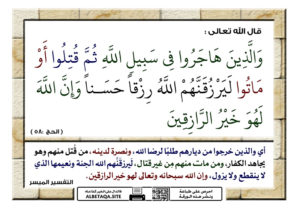 قال الله تعالى :
وَالَّذِينَ هَاجَرُوا فِي سَبِيلِ اللَّهِ ثُمَّ قُتِلُوا أَوْ
مَاتُوا لَيَرْزُقَنَّهُمُ اللَّهُ رِزْقًا حَسَنًا وَإِنَّ اللَّهَ
لَهُوَ خَيْرُ الرَّازِقِينَ
( الحج : ٥٨ )
أي والذين خرجوا من ديارهم طلبًا لرضا الله، ونصرة لدينه، من قُتل منهم وهو
يجاهد الكفار، ومن مات منهم من غير قتال، ليرزقنَّهم الله الجنة ونعيمها الذي
لا ينقطع ولا يزول، وإن الله سبحانه وتعالى لهو خير الرازقين.
التفسير الميسر
احرص على طباعة
ونشر هذه البطاقة
ALBETAQA.SITE